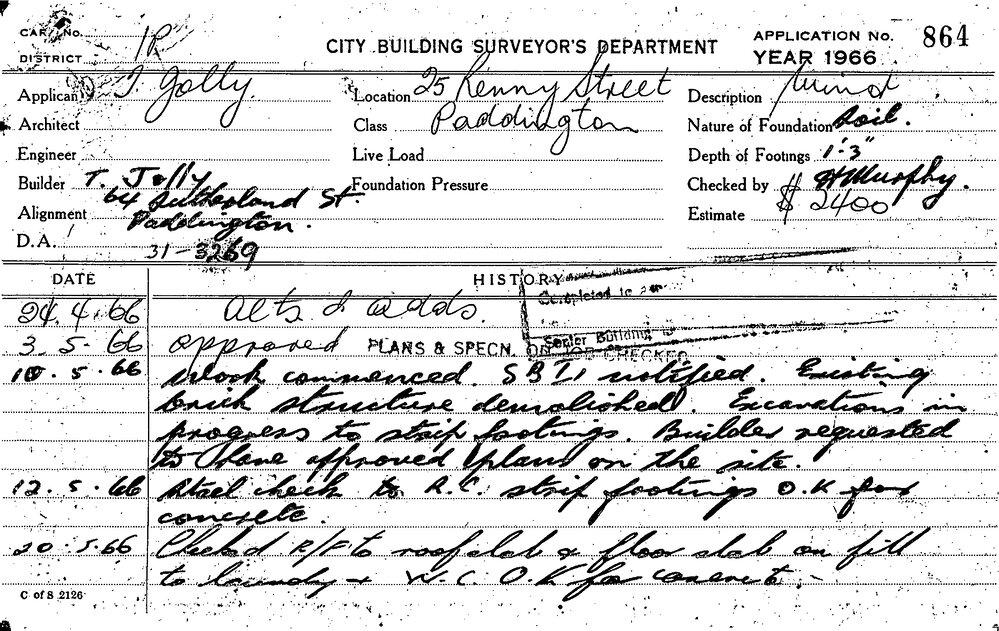 CARD No.
DISTRICT 1R
CITY BUILDING SURVEYOR'S DEPARTMENT
APPLICATION No. 864
YEAR 1966
Applicant T Jolly.
Location 25 Renny Street
Paddington
Description Mind
Architect
Class
Nature of Foundation Soil.
Engineer
Live Load
Depth of Footings 1'-3"
Builder T. Jolly
64 Sutherland St.
Paddington.
31-3269
Foundation Pressure
Checked by H Murphy.
Alignment
Estimate $2400
D.A.
DATE HISTORY
24.4.66 Alts & adds.
Completed to
Senior Building
3.5.66 approved PLANS & SPECN. ON JOB CHECKED
10.5.66 Work commenced. SBI notified. Existing
brick structure demolished. Excavations in
progress to strip footings. Builder requested
to have approved plans on the site.
12.5.66 Steel check to R.C. strip footings O.K for
concrete.
20.5.66 Checked R/F to roof slab & floor slab on fill
to laundry & W.C. O.K for concrete.
C of S 2126